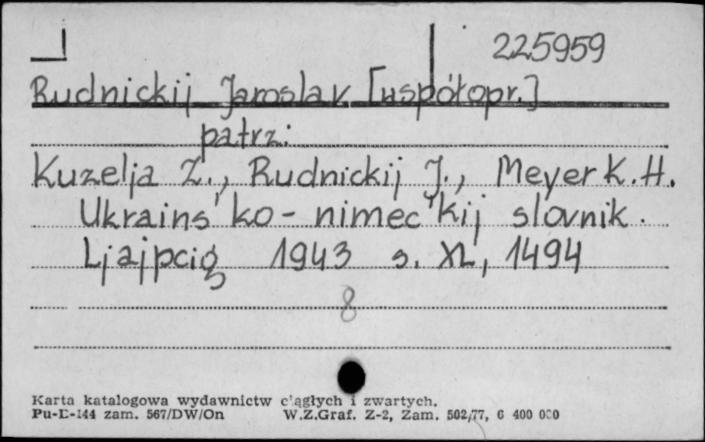 225959
Rudnickij Jaroslav [współopr.]
patrz:
Kuzelja Z., Rudnickij J., Meyer K. H.
Ukrains'ko-nimec'kij slovnik.
Ljajpcig 1943 s. XL, 1494
8
Karta katalogowa wydawnictw ciągłych i zwartych.
Pu-D-144 zam. 567/DW/On W.Z.Graf. Z-2, Zam. 502/77, 6 400 000